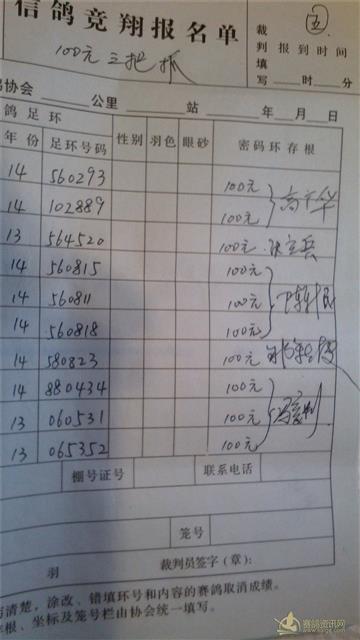 信鸽竞翔报名单
裁判填写
五
报到时间
时 分
100元 三把抓
协会 公里 站 年 月 日
鸽足环
年份 足环号码 性别 羽色 眼砂 密码环存根
14 560293 100元
14 102889 100元
13 564520 100元
14 560815 100元
14 560811 100元
14 560818 100元
14 580823 100元
14 880434 100元
13 060531 100元
13 065352 100元
棚号证号 联系电话
笼号
羽 裁判员签字(章):
清楚,涂改、错填环号和内容的赛鸽取消成绩。
根、坐标及笼号栏由协会统一填写。
赛鸽资讯网